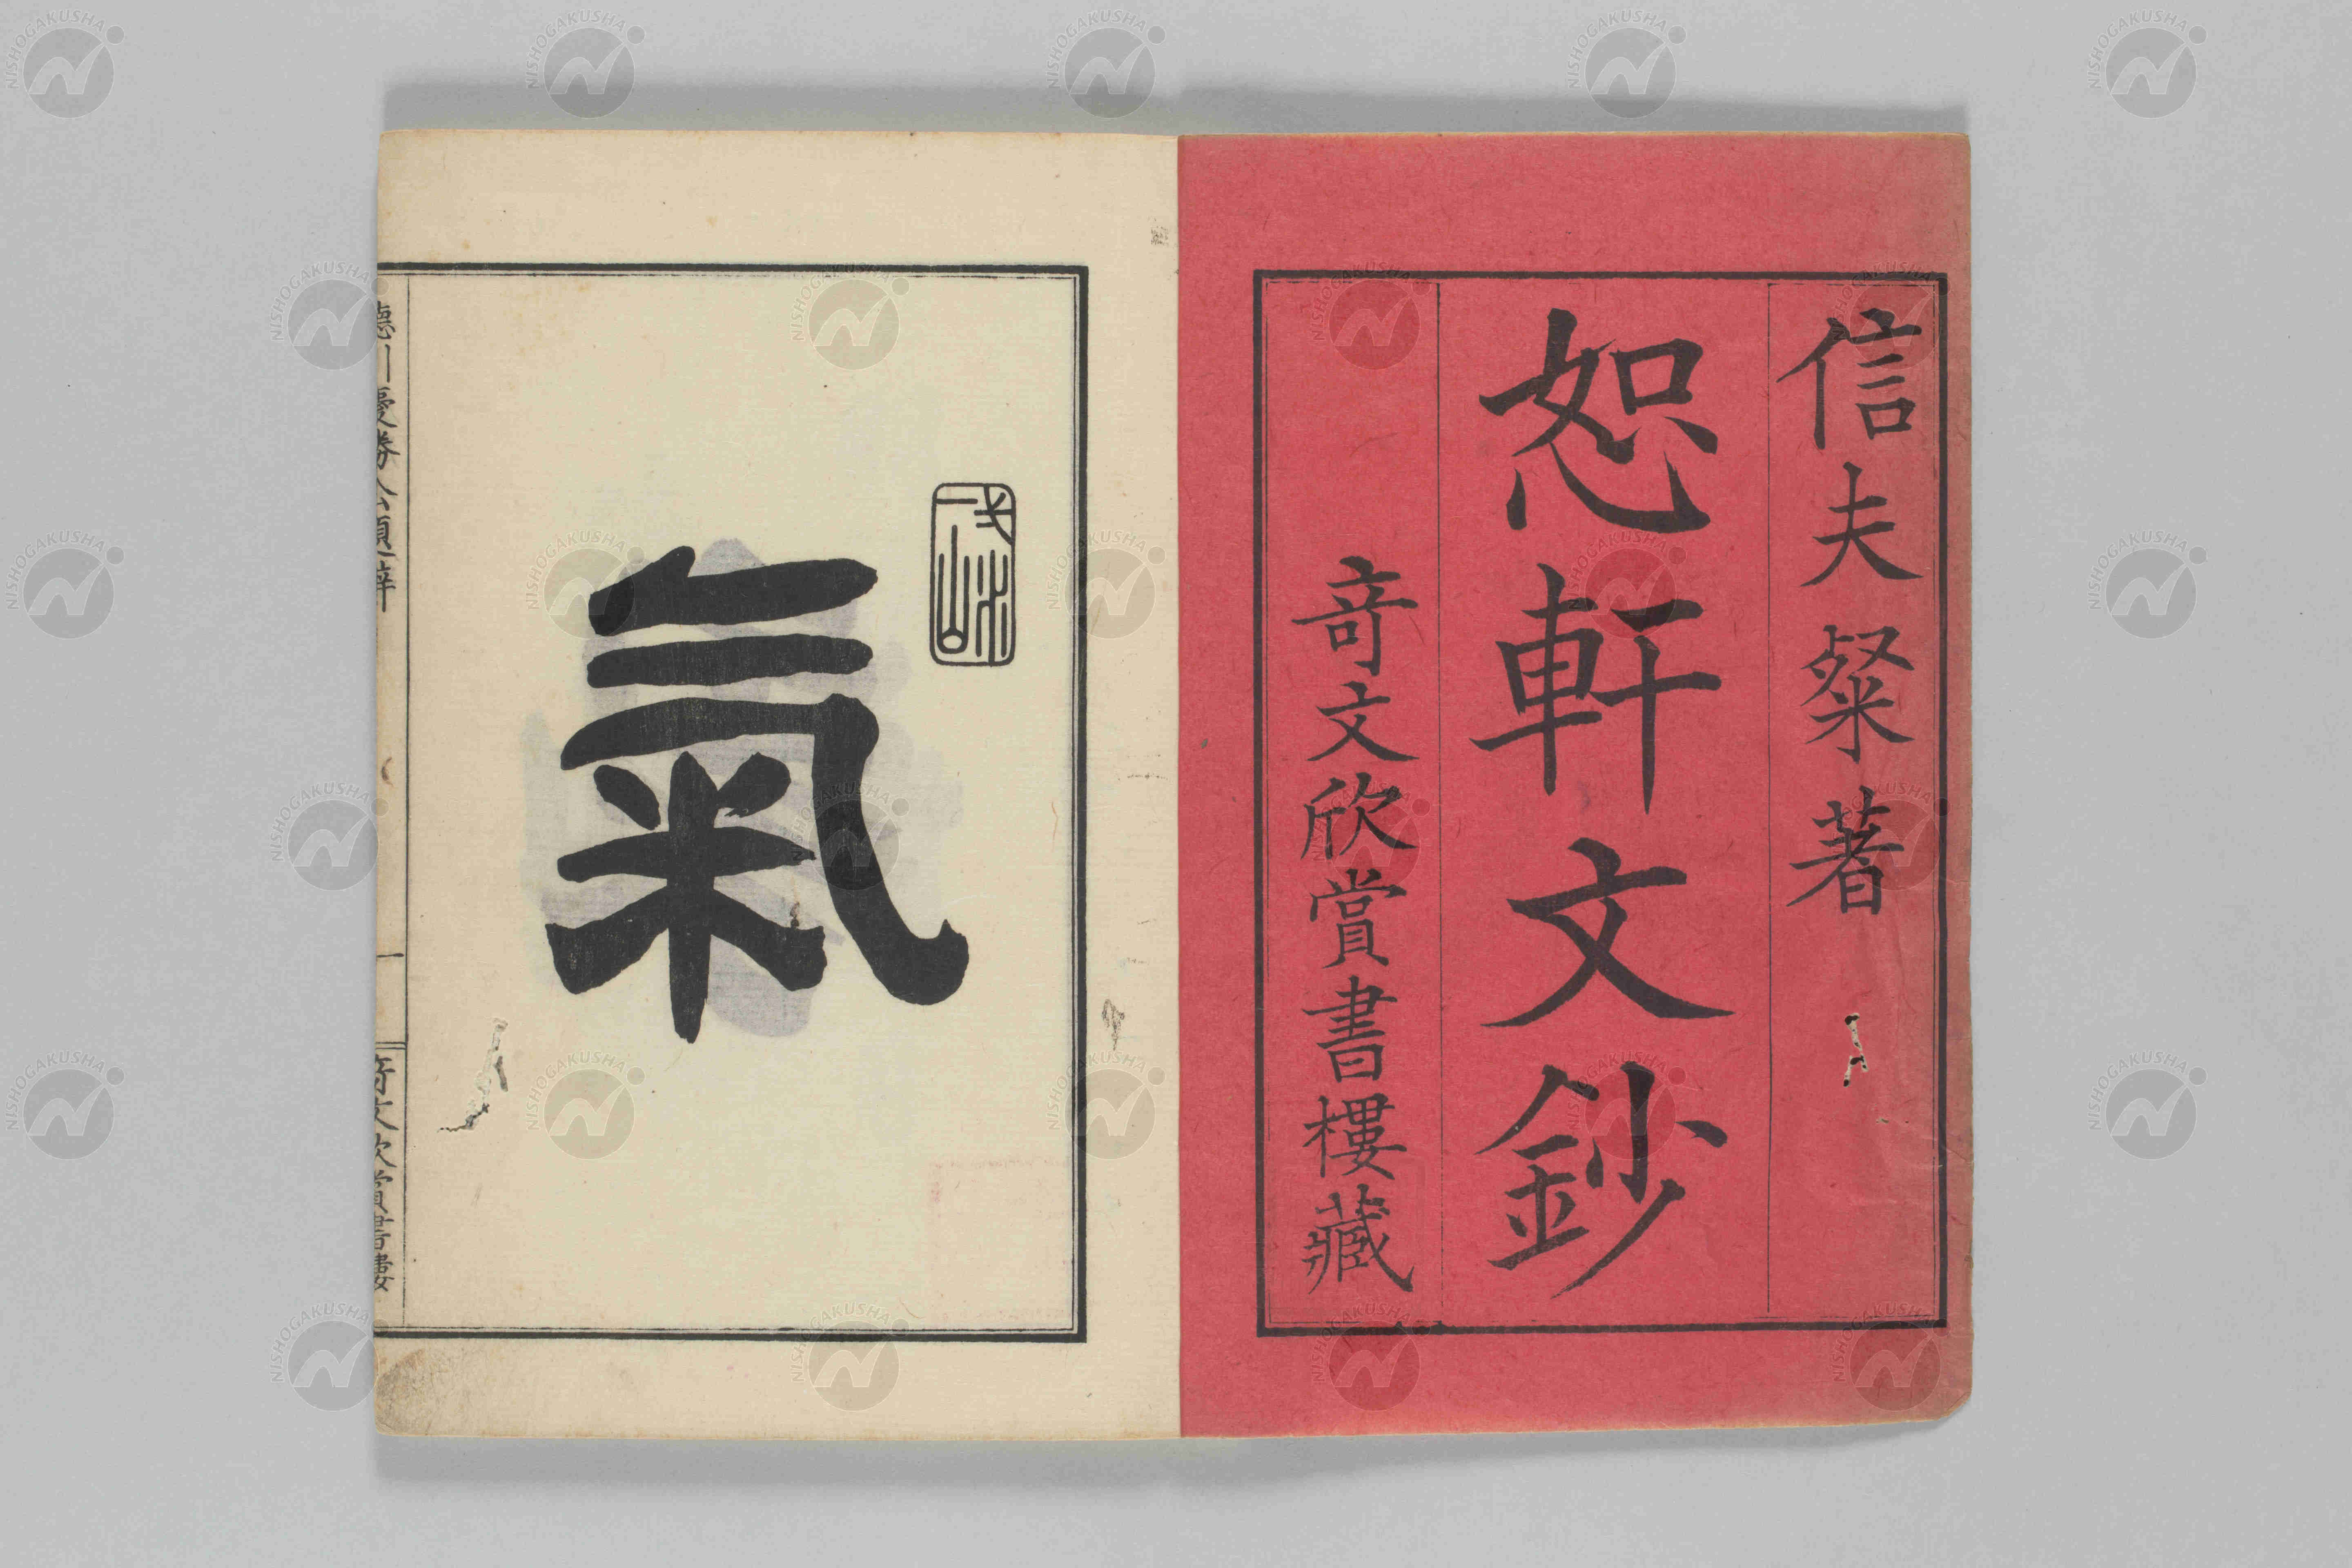 信夫粲著
恕軒文鈔
奇文欣賞書樓藏
氣
一
NISHOGAKUSHA